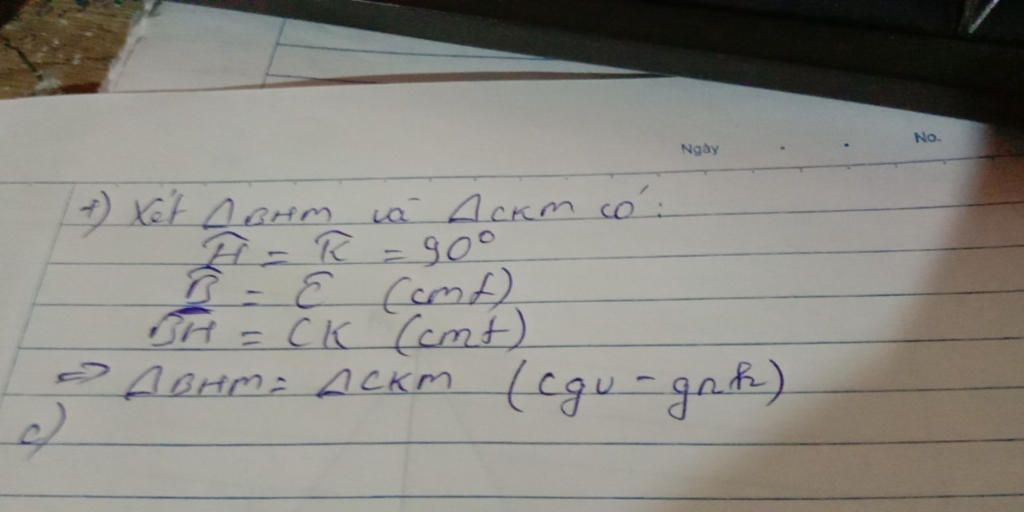 Ngày . . No.
+) Xét ΔBHM và ΔCKM có:
Ĥ = K̂ = 90°
B̂ = Ĉ (cmt)
BH = CK (cmt)
=> ΔBHM = ΔCKM (cgv - gnk)
c)